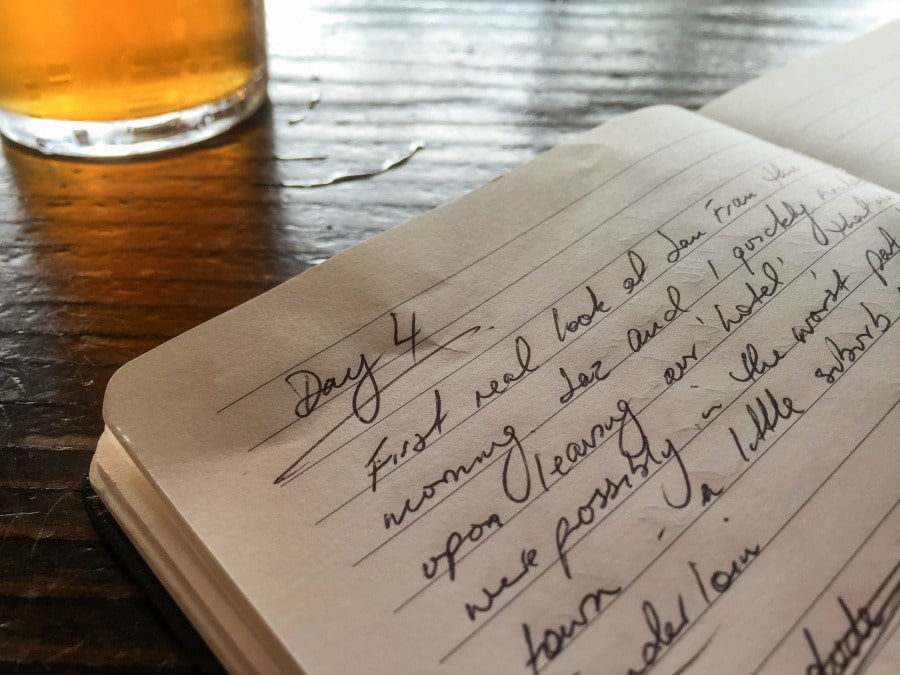 Day 4
First real look at San Fran this
morning. Jaz and I quickly
upon leaving our 'hotel' that
were possibly in the worst part
town - in a little suburb
nderloin